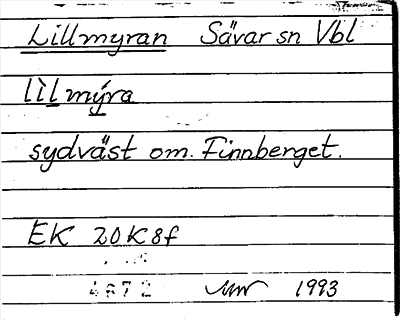 Lillmyran Sävar sn Vbl
lìlmýra
sydväst om. Finnberget.
EK 20K8f
4672 1993